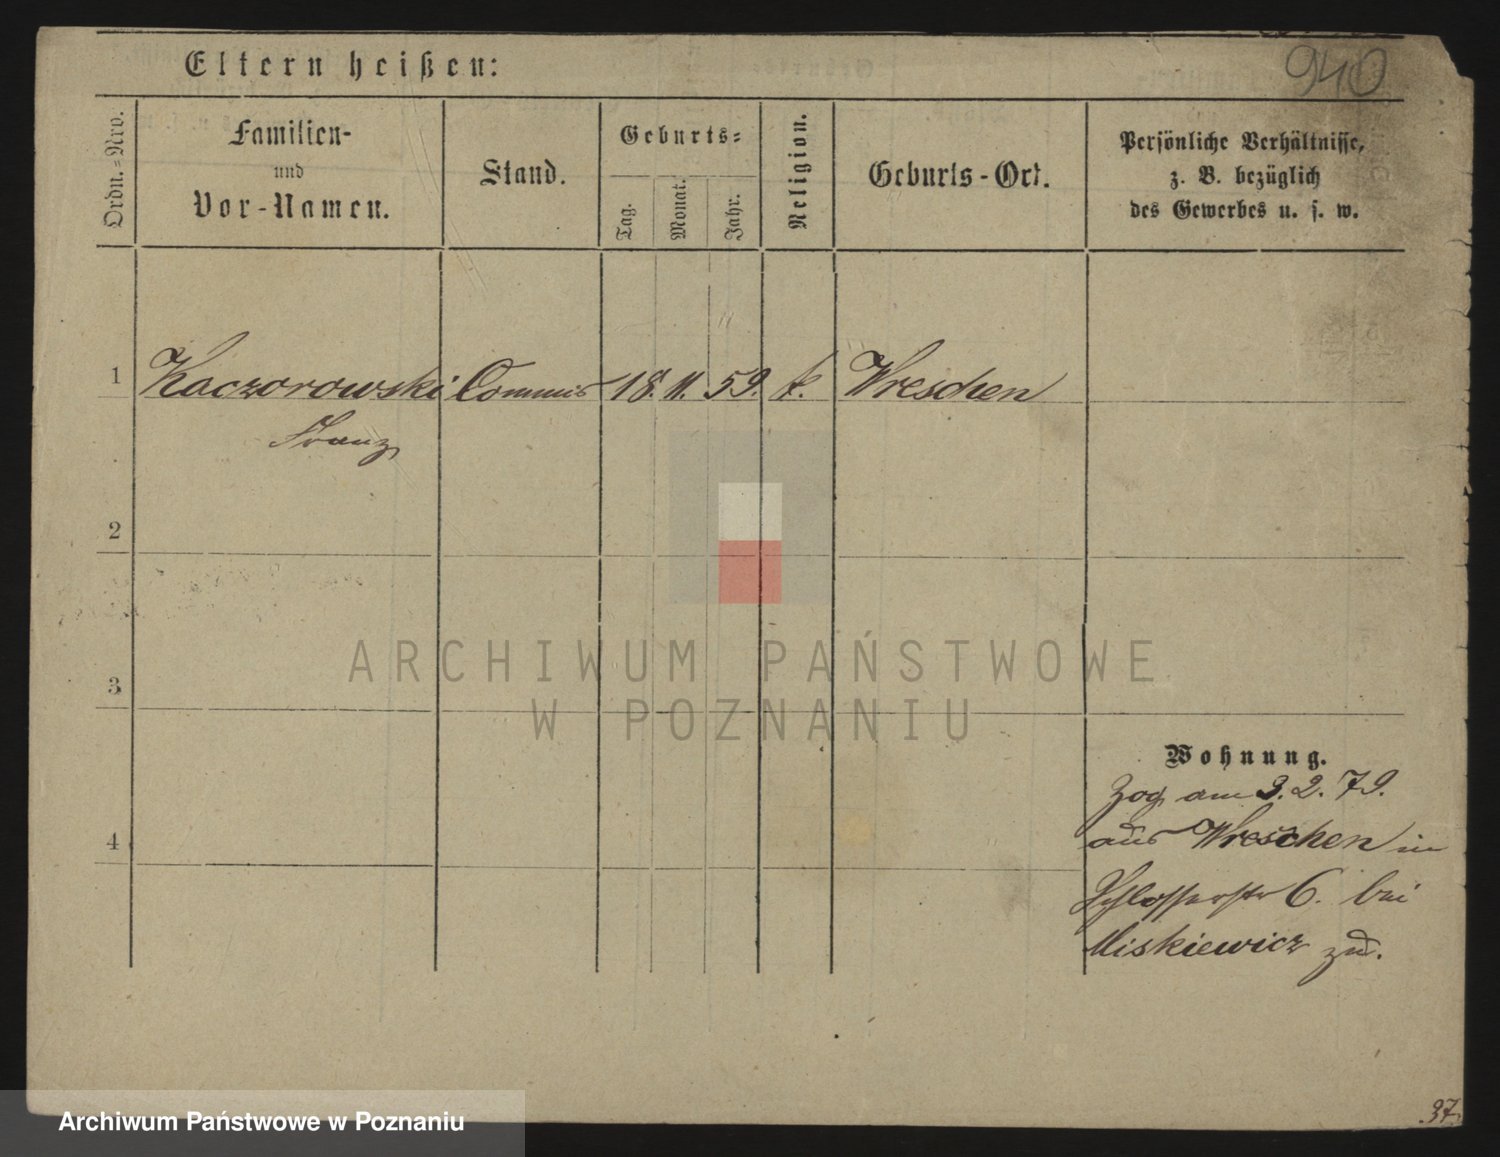 940
Eltern heißen:
Ordn.=Nro.
Familien-
und
Vor-Namen.
Stand.
Geburts=
Tag.
Monat.
Jahr.
Religion.
Geburts-Ort.
Persönliche Verhältnisse,
z. B. bezüglich
des Gewerbes u. s. w.
1 Kaczorowski Commis 18. 11. 59. k. Wreschen
Franz
2
3
ARCHIWUM PAŃSTWOWE
W POZNANIU
Wohnung.
Zog am 3. 2. 79.
aus Wreschen in
4
Schlosserstr 6. bei
Miskiewicz zu.
Archiwum Państwowe w Poznaniu
37.